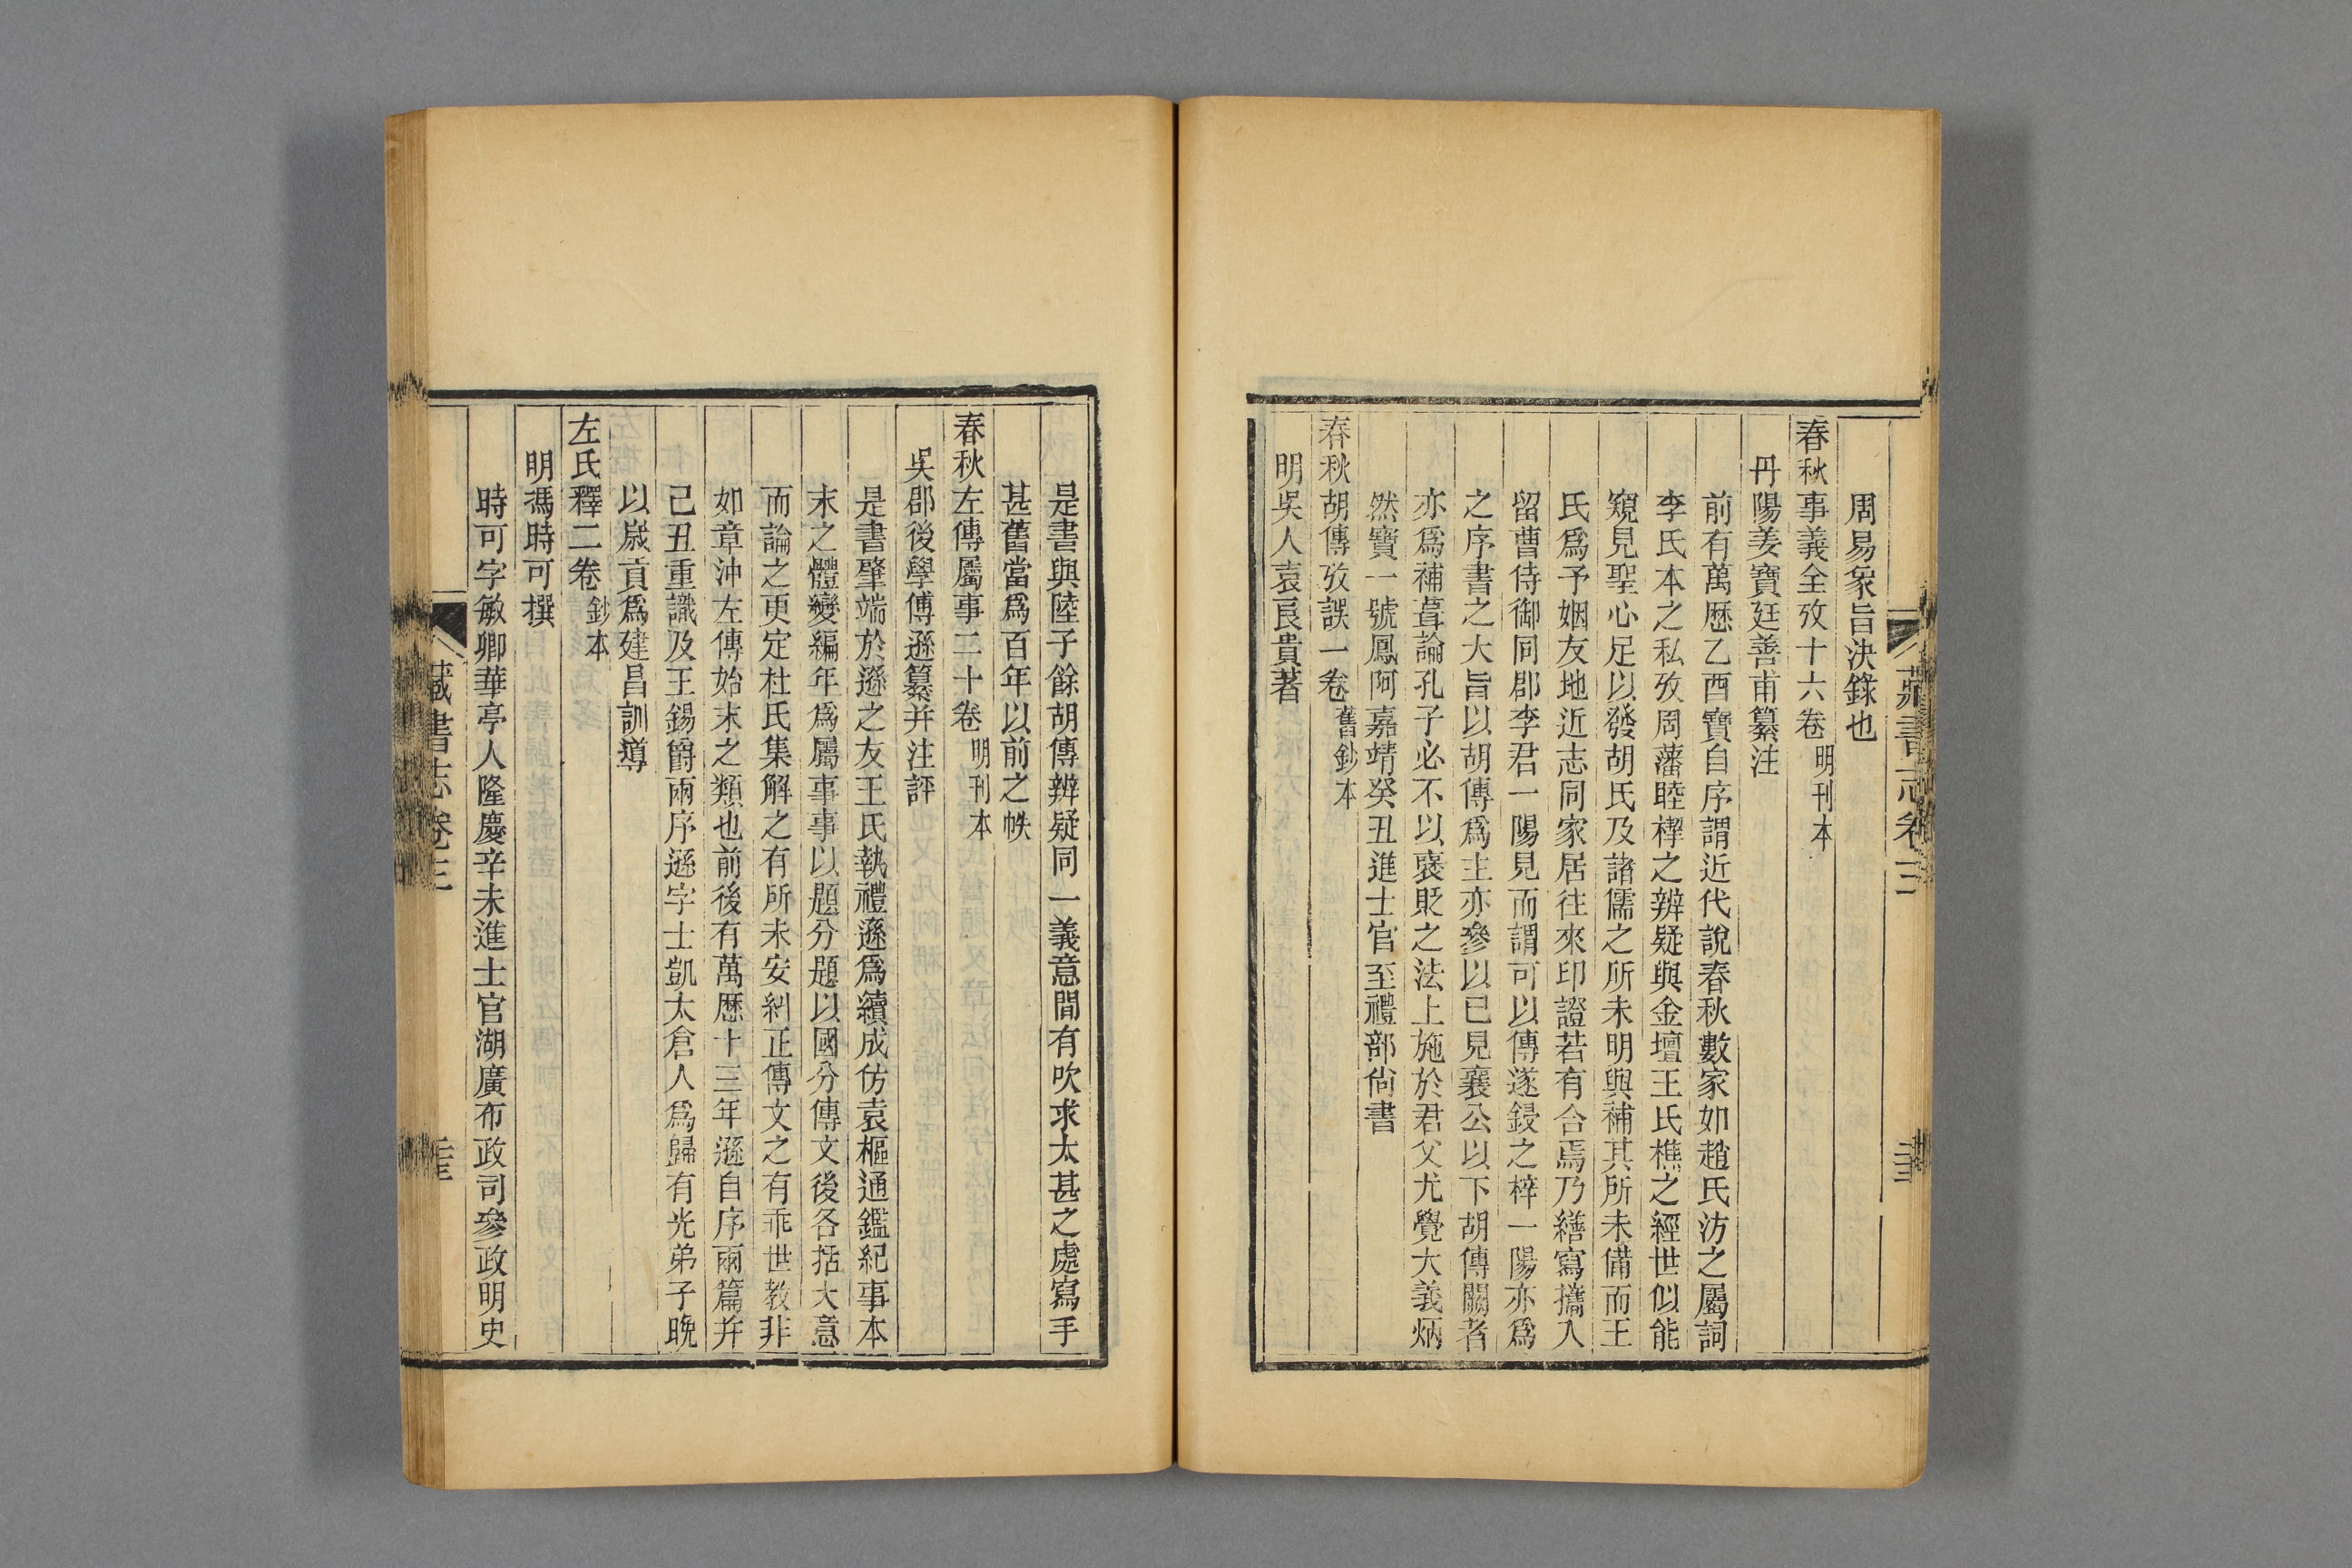 周易象旨決錄也
春秋事義全攷十六卷明刊本
丹陽姜寶廷善甫纂注
前有萬歷乙酉寶自序謂近代說春秋數家如趙氏汸之屬詞
李氏本之私攷周藩睦㮮之辨疑與金壇王氏樵之經世似能
窺見聖心足以發胡氏及諸儒之所未明與補其所未備而王
氏爲予姻友地近志同家居往來印證若有合焉乃繕寫攜入
留曹侍御同郡李君一陽見而謂可以傳遂鋟之梓一陽亦爲
之序書之大旨以胡傳爲主亦參以已見襄公以下胡傳闕者
亦爲補葺論孔子必不以褒貶之法上施於君父尤覺大義炳
然寶一號鳳阿嘉靖癸丑進士官至禮部尙書
春秋胡傳攷誤一卷舊鈔本
明吳人袁艮貴著
藏書志卷三
是書與陸子餘胡傳辨疑同一義意間有吹求太甚之處寫手
甚舊當爲百年以前之帙
春秋左傳屬事二十卷明刊本
吳郡後學傅遜纂并注評
是書肇端於遜之友王氏執禮遜爲續成仿袁樞通鑑紀事本
末之體變編年爲屬事事以題分題以國分傳文後各括大意
而論之更定杜氏集解之有所未安糾正傳文之有乖世教非
如章沖左傳始末之類也前後有萬歷十三年遜自序兩篇并
己丑重識及王錫爵兩序遜字士凱太倉人爲歸有光弟子晚
以歲貢爲建昌訓導
左氏釋二卷鈔本
明馮時可撰
時可字敏卿華亭人隆慶辛未進士官湖廣布政司參政明史
藏書志卷三